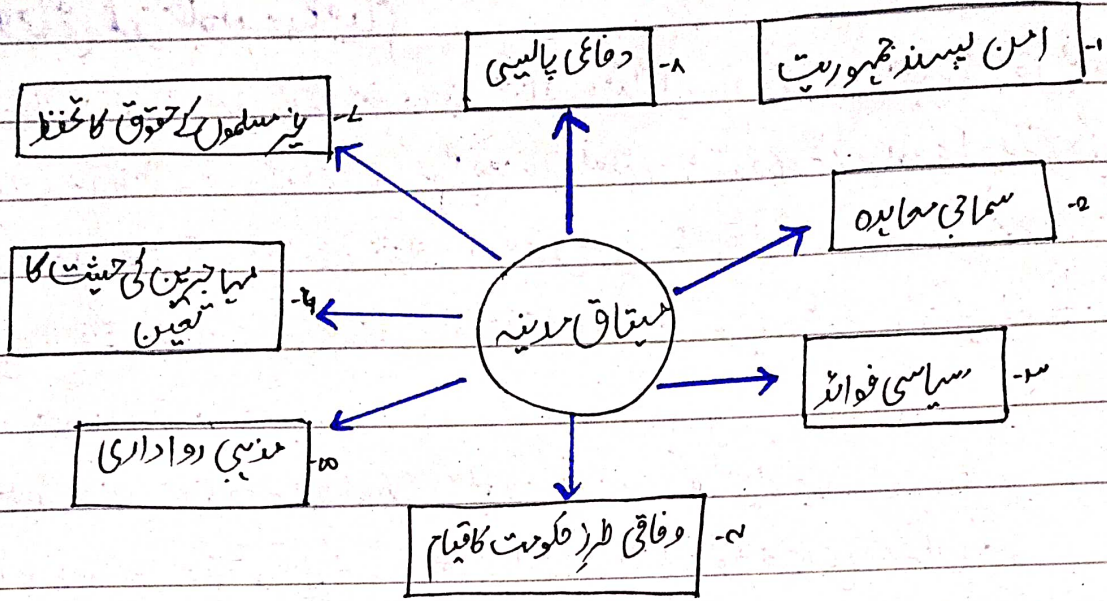 ۱- امن پسند جمہوریت
۲- سماجی معاہدہ
۳- سیاسی فوائد
۴- وفاقی طرزِ حکومت کا قیام
۵- مذہبی رواداری
۶- مہاجرین کی حیثیت کا
تعین
۷- غیر مسلموں کے حقوق کا تحفظ
۸- دفاعی پالیسی
میثاق مدینہ